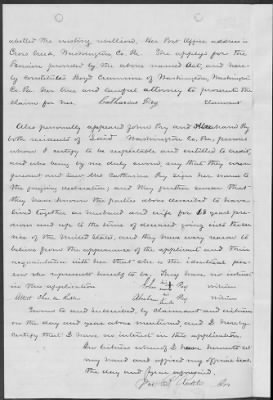 abelled the existing rebellion. Her Post Office address is
Cross Creek, Washington Co. Pa. She applies for the
Pension provided by the above named Act, and here-
by constitutes Boyd Crumrine of Washington, Washington
Co. Pa. her true and lawful attorney to prosecute the
claim for her. Catharine Fry claimant
Also personally appeared John Fry and Abraham Fry
both residents of said Washington Co. Pa., persons
whom I certify to be respectable and entitled to credit,
and who being by me duly sworn, say that they were
present and saw Mrs Catharine Fry sign her name to
the foregoing declaration; and they further swear that
they have known the parties above described to have
lived together as husband and wife for 18 years pre-
vious and up to the time of deceased going into the ser-
vice of the United States, and they have every reason to
believe from the appearance of the applicant and their
acquaintance with her that she is the identical per-
son she represents herself to be. They have no interest
in this application. John Fry witness
Attest Abraham Fry witness
Sworn to and subscribed, by claimant and witnesses
on the day and year above mentioned, and I hereby
certify that I have no interest in this application.
In witness whereof I have hereunto set
my hand and affixed my official seal
the day and year aforesaid.